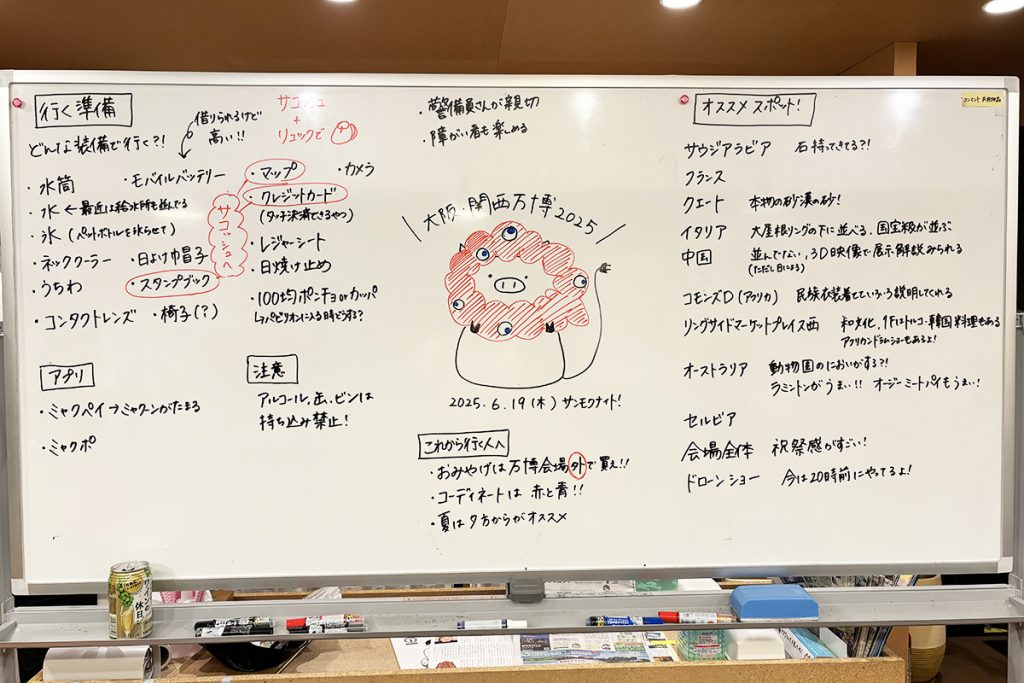 行く準備
どんな装備で行く?!
借りられるけど
高い!!
サコッシュ
+
リュックで
・水筒
・モバイルバッテリー
・マップ
・カメラ
・水 ← 最近は給水所も並んでる
・クレジットカード
(タッチ決済できるやつ)
・氷 (ペットボトルを氷らせて)
サコッシュへ
・ネッククーラー
・日よけ帽子
・レジャーシート
・うちわ
・スタンプブック
・日焼け止め
・コンタクトレンズ
・椅子(?)
・100均ポンチョorカッパ
↳パビリオンに入る時どうする?
アプリ
・ミャクペイ→ミャクーンがたまる
・ミャクポ
注意
アルコール,缶,ビンは
持ち込み禁止!
・警備員さんが親切
・障がい者も楽しめる
大阪・関西万博2025
2025.6.19(木) サンモクナイト!
これから行く人へ
・おみやげは万博会場外で買え!!
・コーディネートは 赤と青!!
・夏は夕方からがオススメ
オススメ スポット!
サウジアラビア 石持ってきてる?!
フランス
クェート 本物の砂漠の砂!
イタリア 大屋根リングの下に並べる,国宝級が並ぶ
中国 並んでない,3D映像で展示解説みられる
(ただし日による)
コモンズD(アフリカ) 民族衣装着てていろいろ説明してくれる
リングサイドマーケットプレイス西 和文化,1Fはトルコ・韓国料理もある
アフリカンドラムショーもあるよ!
オーストラリア 動物園のにおいがする?!
ラミントンがうまい!! オージーミートパイもうまい!
セルビア
会場全体 祝祭感がすごい!
ドローンショー 今は20時前にやってるよ!
休日